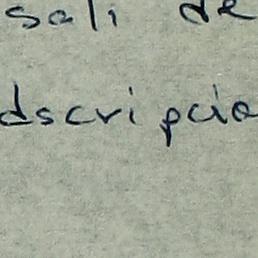 sali de
dscripcio